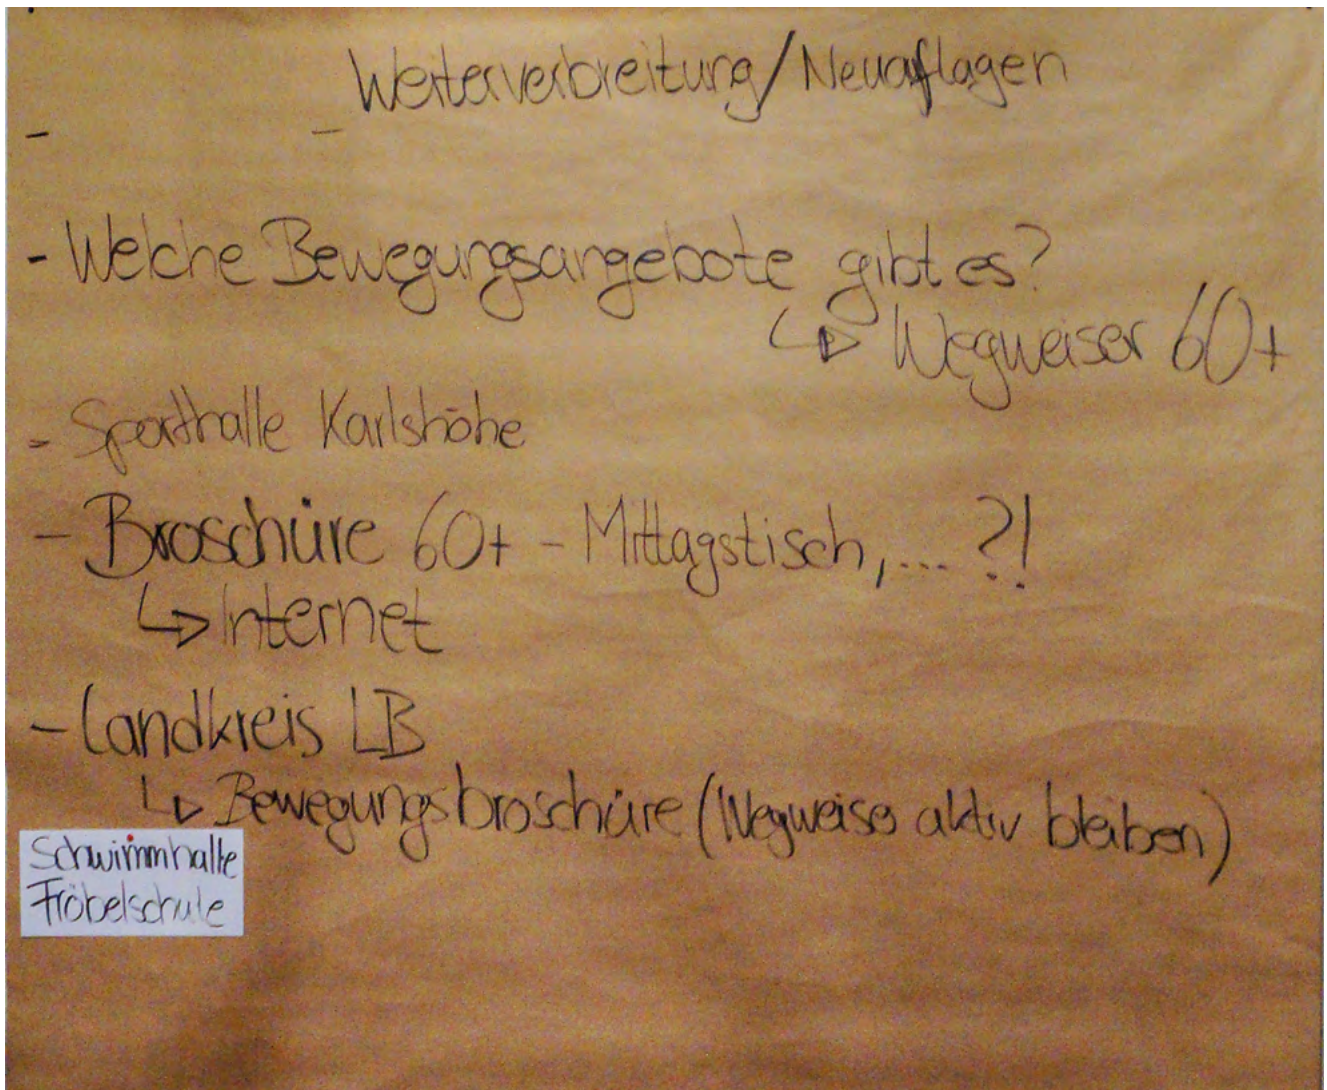 Weiterverbreitung/Neuauflagen
-
- Welche Bewegungsangebote gibt es?
↳ Wegweiser 60+
- Sporthalle Karlshöhe
- Broschüre 60+ - Mittagstisch,... ?!
↳ Internet
- Landkreis LB
↳ Bewegungsbroschüre (Wegweiser aktiv bleiben)
Schwimmhalle
Fröbelschule